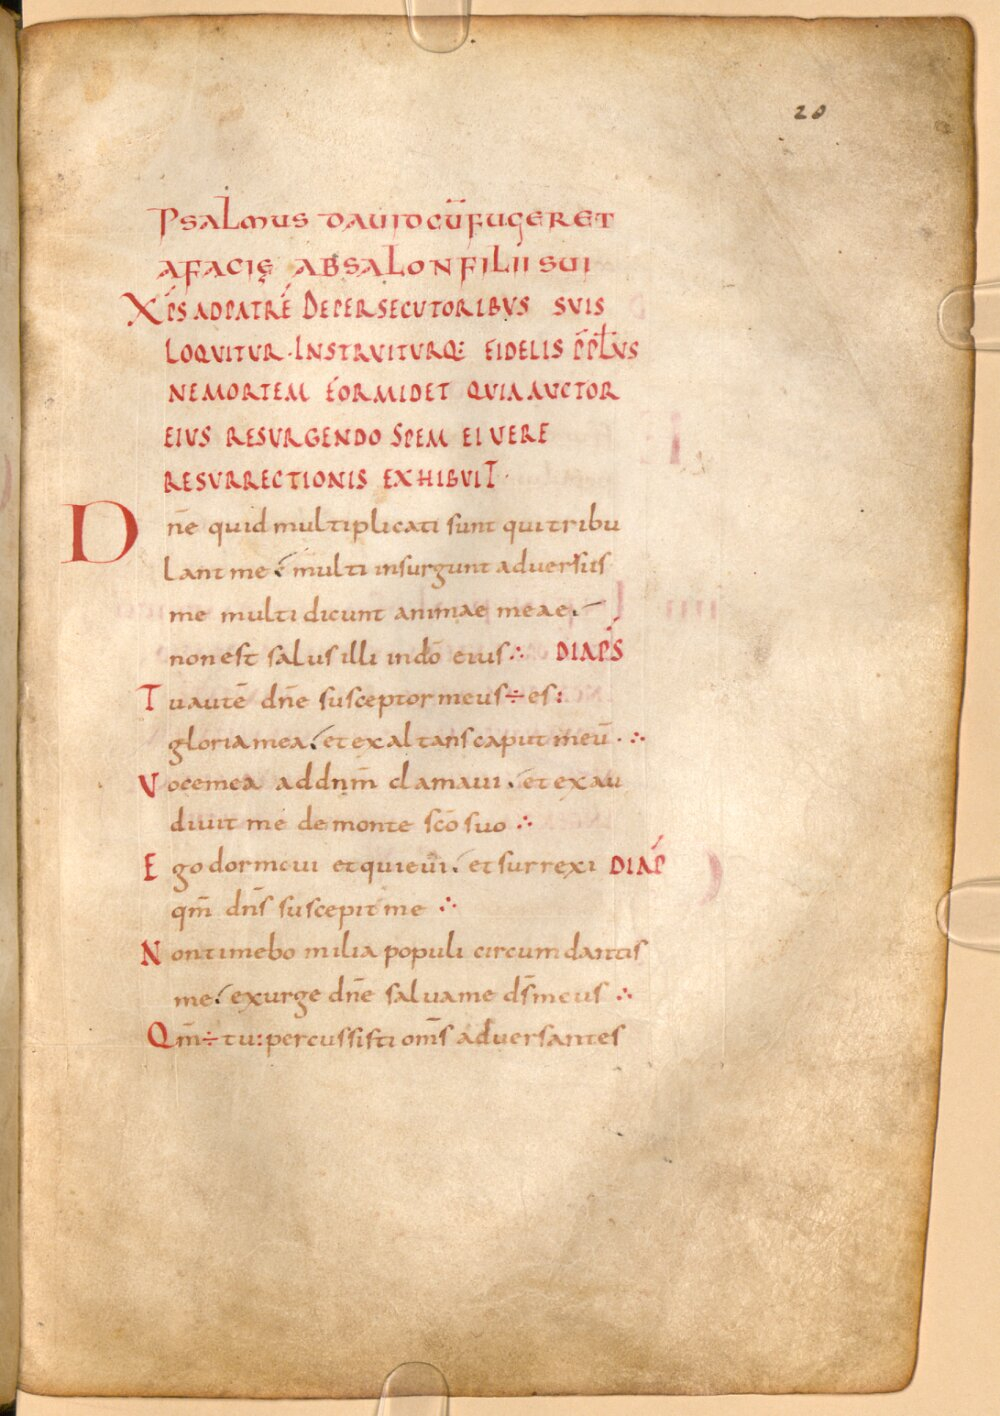 20
PSALMUS DAUID CŪ FUGERET
A FACIĘ ABSALON FILII SUI
XP̄S AD PATRĒ DE PERSECUTORIBVS SVIS
LOQVITVR · INSTRVITVRQ: FIDELIS P̄PLVS
NE MORTEM FORMIDET QVIA AVCTOR
EIVS RESURGENDO SPEM EI VERE
RESVRRECTIONIS EXHIBVIT·
Dn̄e quid multiplicati sunt qui tribu
lant me : multi insurgunt adversus
me multi dicunt animae meae .
non est salus illi in dō eius ∴ DIAPS̄
Tu autē dn̄e susceptor meus ÷ es :
gloria mea . et exaltans caput meū · ∴
Voce mea ad dnm̄ clamavi . et exau
divit me de monte sc̄o suo ∴
Ego dormivi et quievi . et surrexi DIAP̄
qm̄ dn̄s suscepit me ∴
Non timebo milia populi circumdantis
me . exurge dn̄e salva me ds̄ meus ∴
Qm̄ ÷ tu : percussisti om̄s adversantes